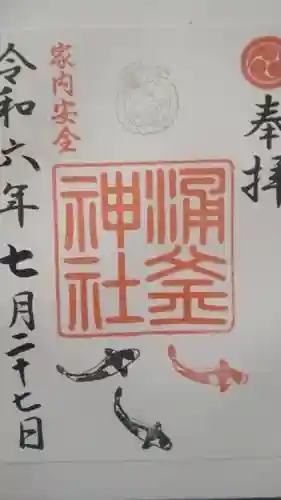 奉拝
涌釜
神社
家内安全
令和六年七月二十七日